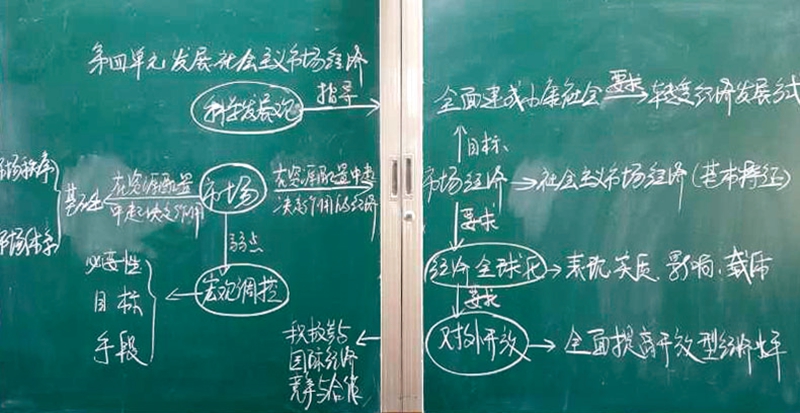 第四单元:发展社会主义市场经济
科学发展观
指导
市场秩序
市场体系
基础
在资源配置
中起决定作用
市场
在资源配置中起
决定作用的经济
弱点
宏观调控
必要性
目标
手段
积极参与
国际经济
竞争与合作
全面建成小康社会
要求
转变经济发展方式
目标
市场经济
社会主义市场经济(基本特征)
要求
经济全球化
表现、实质、影响、载体
要求
对外开放
全面提高开放型经济水平